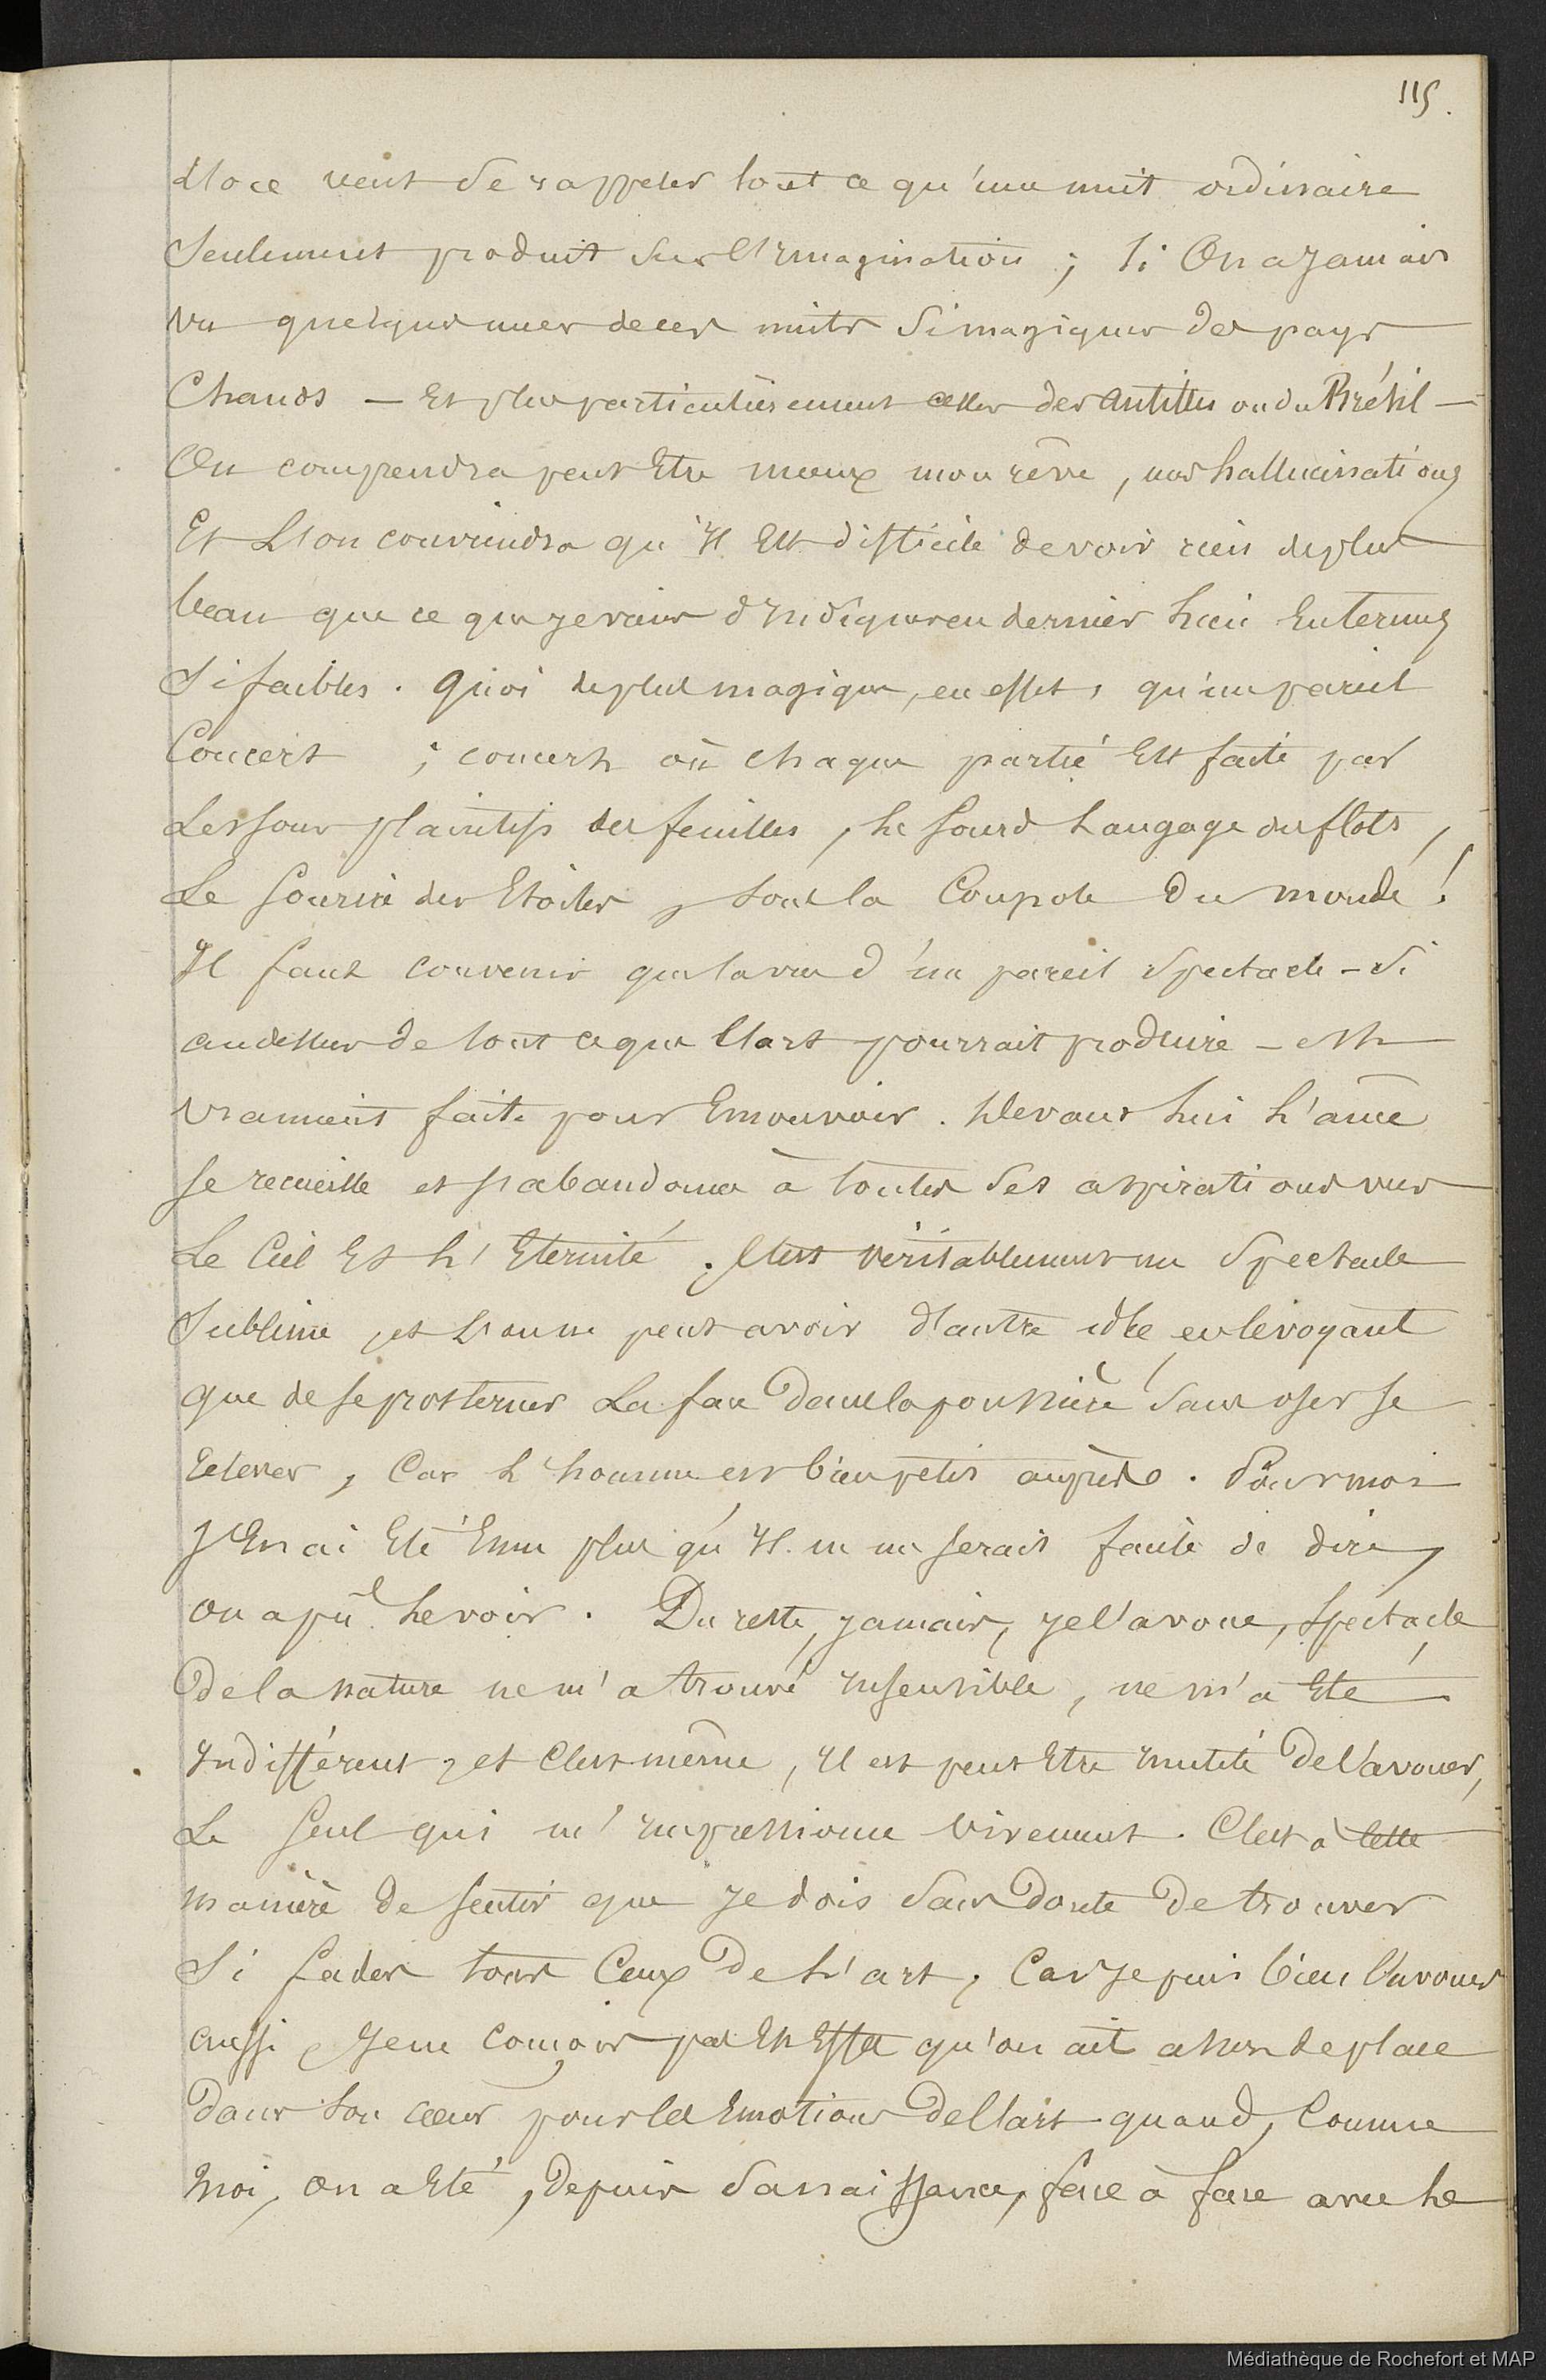 115.
veut se rappeler tout ce qu'une nuit ordinaire
seulement produit sur l'Imagination ; si On a jamais
vu quelques unes de ces nuits si magiques des pays
Chauds — Et plus particulièrement celles des Antilles ou du Brésil —
On comprendra peut Etre mieux mon rêve, mes hallucinations
Et L'on conviendra qu'Il Est difficile de voir rien de plus
beau que ce que je viens d'Indiquer en dernier lieu En termes
si faibles. Quoi de plus magique, en effet, qu'un pareil
Concert ; concert où chaque partie Est faite par
Les sons plaintifs des feuilles, le sourd langage des flots,
Le sourire des Etoiles, sous la Coupole du monde !
Il faut convenir que la vue d'un pareil spectacle — si
au dessus de tout ce que l'art pourrait produire — est
vraiment faite pour Emouvoir. Devant lui l'âme
se recueille et s'abandonne à toutes ses aspirations vers
Le Ciel Et l'Eternité. C'est véritablement un spectacle
sublime, et L'on ne peut avoir d'autre idée en le voyant
que de se prosterner La face dans la poussière sans oser se
relever, Car l'homme est bien petit auprès. Pour moi
J'En ai Eté Emu plus qu'Il ne me serait facile de dire,
on a pû le voir. Du reste, jamais, je l'avoue, spectacle
De la nature ne m'a trouvé Insensible, ne m'a Eté
Indifférent, et C'est même, Il est peut Etre Inutile De l'avouer,
Le seul qui m'Impressionne vivement. C'est à cette
manière de sentir que je dois sans Doute De trouver
si fades tous Ceux De l'art, Car je puis bien l'avouer
aussi, Je ne conçois pas En Effet qu'on ait assez de place
Dans son cœur pour les Emotions De l'art quand, Comme
moi, on a Eté, Depuis sa naissance, face à face avec le
Médiathèque de Rochefort et MAP